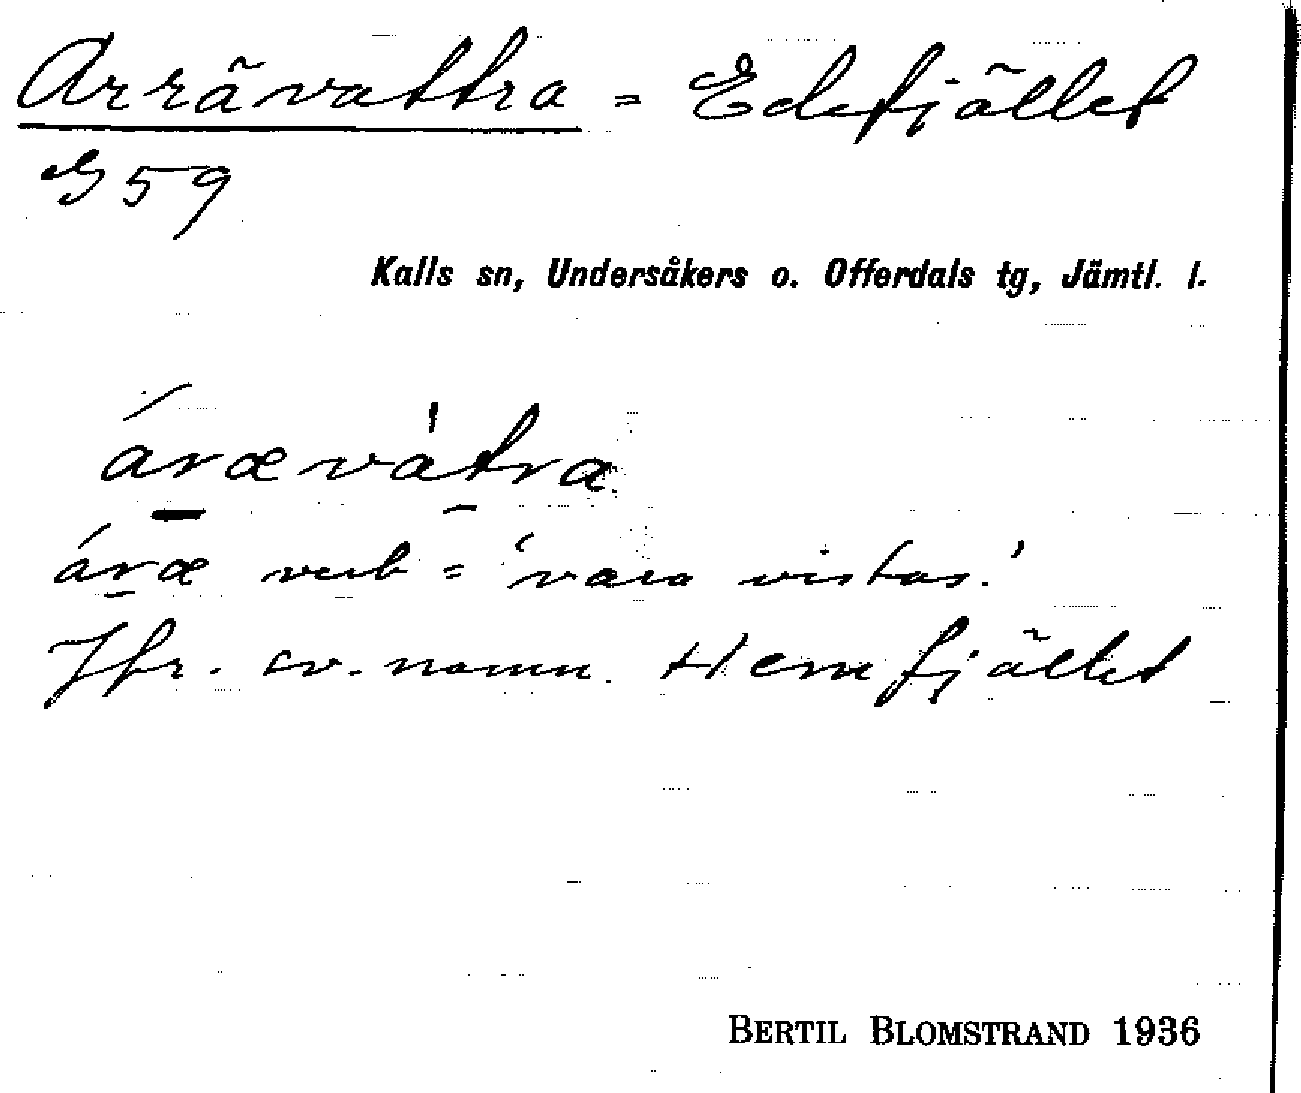 Arrävattra = Edefjället
G 59
Kalls sn, Undersåkers o. Offerdals tg, Jämtl. l.
áræva̍tra
áræ verb = 'vara vistas.'
Jfr. sv. namn. Hemfjället
BERTIL BLOMSTRAND 1936